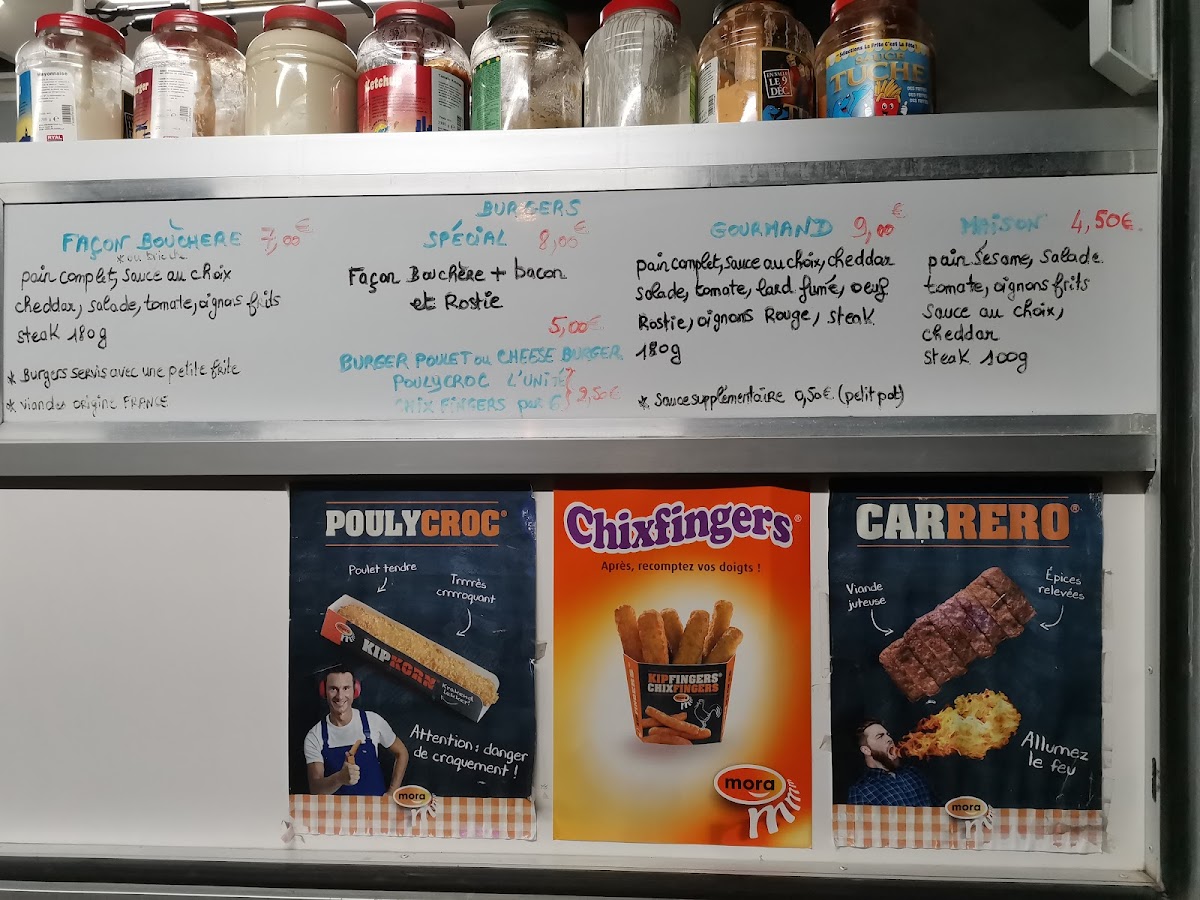 mayonnaise
Burger
Ketchup
EN SALLE
LE 9
DÉC.
Sélectionne la Frite C'est la Fête !
SAUCE
TUCHE
BURGERS
FAÇON BOUCHERE 7,00€
* ou brioche
pain complet, sauce au choix
cheddar, salade, tomate, oignons frits
steak 180g
* Burgers servis avec une petite frite
* Viandes origine FRANCE
SPÉCIAL 8,00€
Façon Bouchère + bacon
et Rostie
5,00€
BURGER POULET ou CHEESE BURGER
POULYCROC L'UNITÉ
CHIX FINGERS par 6 2,50€
GOURMAND 9,00€
pain complet, sauce au choix, cheddar
salade, tomate, lard fumé, oeuf
Rostie, oignons Rouge, steak
180g
* Sauce supplémentaire 0,50€ (petit pot)
MAISON 4,50€
pain Sésame, Salade
tomate, oignons frits
Sauce au choix,
cheddar
Steak 100g
POULYCROC®
Poulet tendre
Trrrrès
crrrroquant
KIPKORN
Krakend
lekker!
Attention : danger
de craquement !
mora
Chixfingers®
Après, recomptez vos doigts !
KIPFINGERS®
CHIXFINGERS
mora
mora
CARRERO®
Viande
juteuse
Épices
relevées
Allumez
le feu
mora